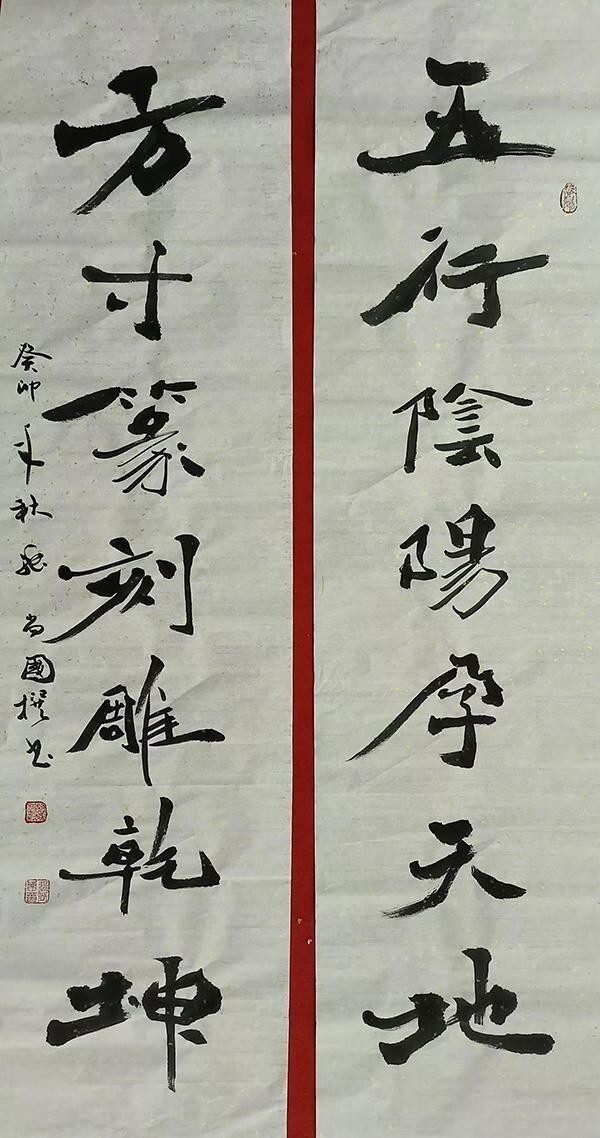 五行陰陽孕天地
方寸篆刻雕乾坤
癸卯年秋魁尚國撰书